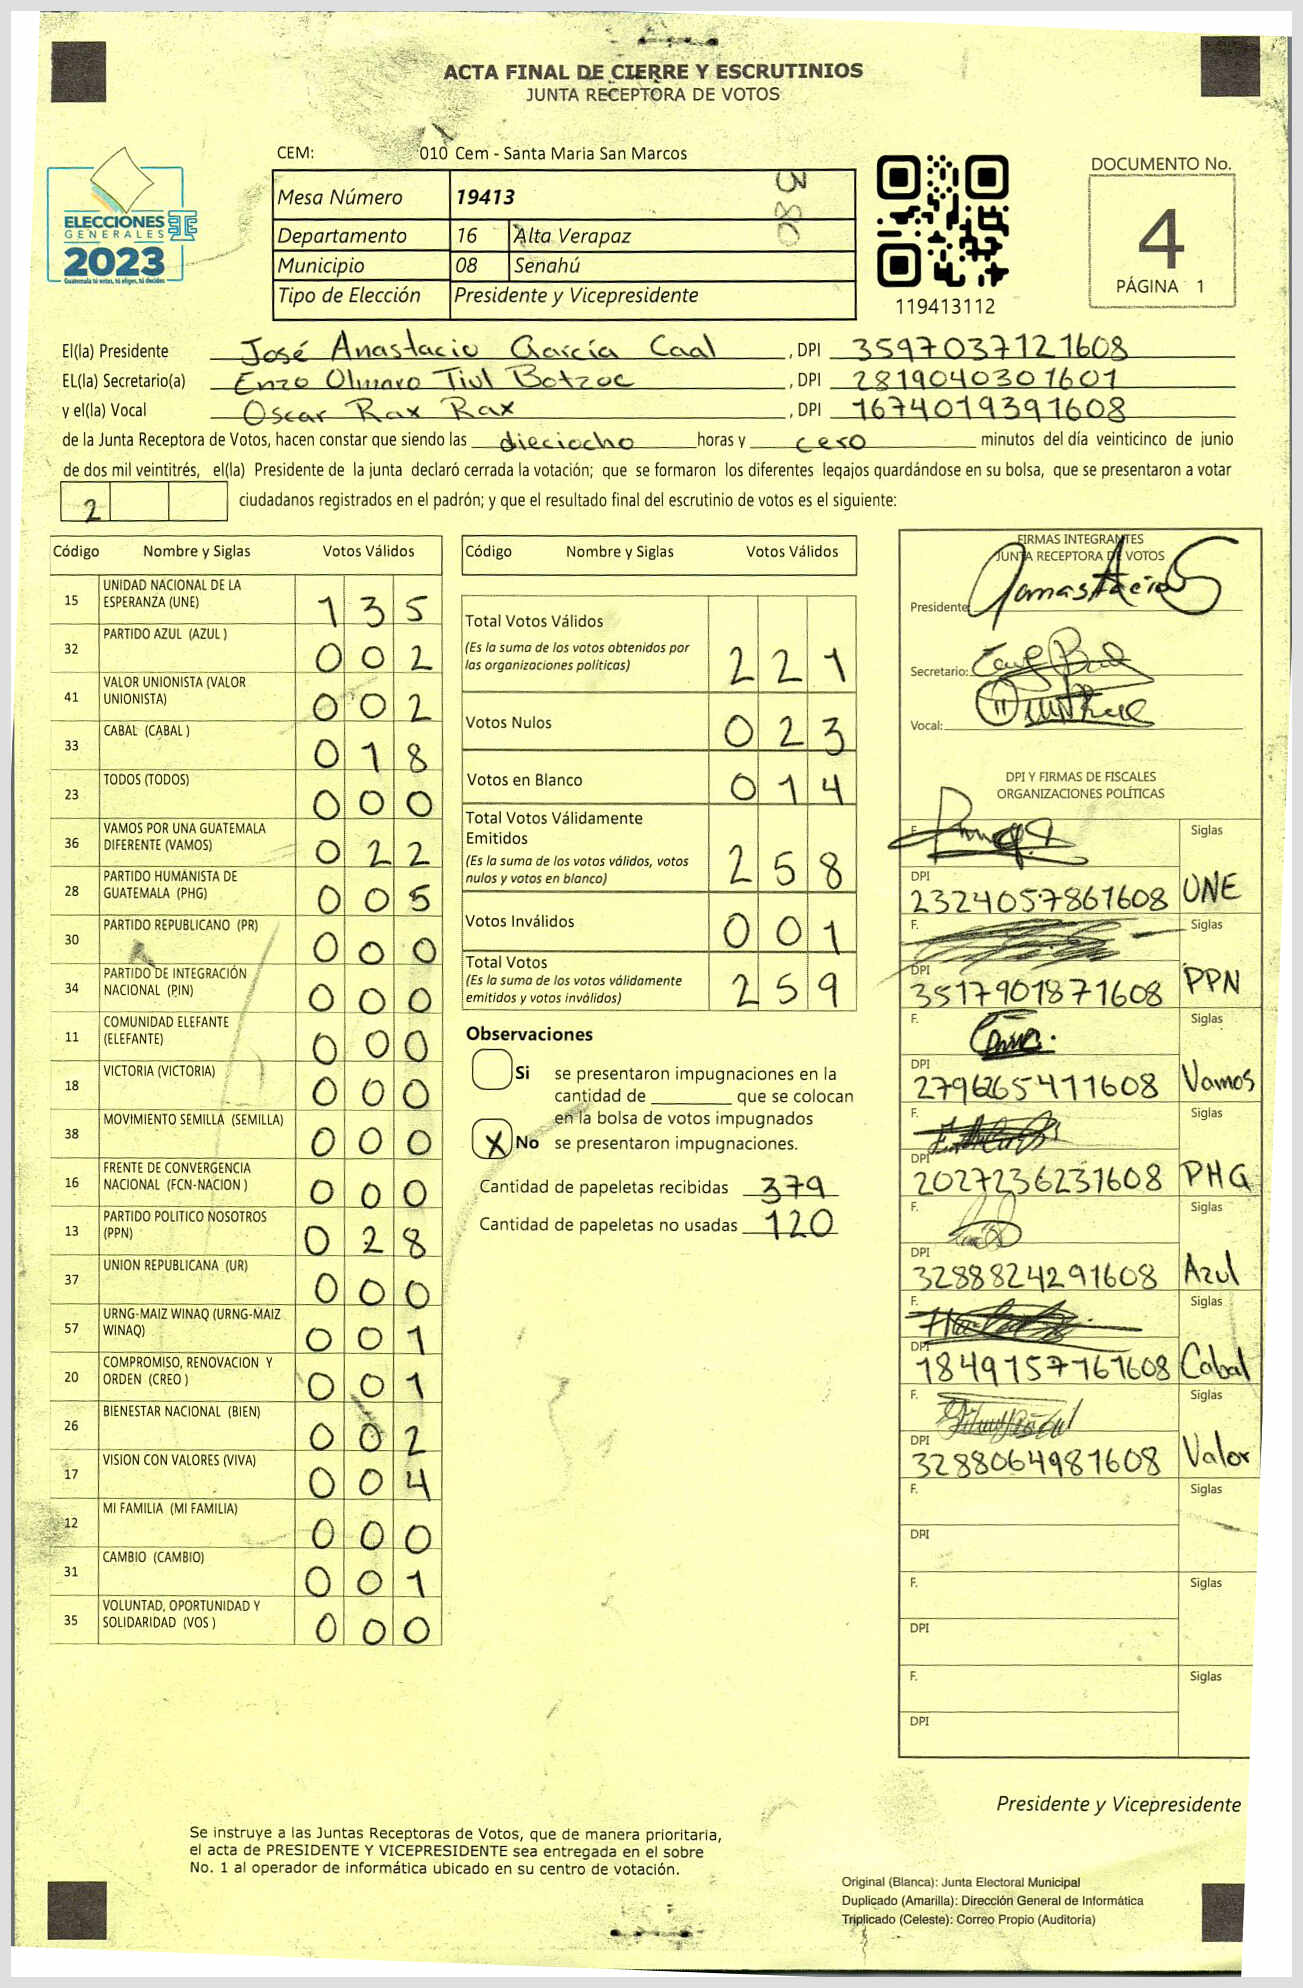 ACTA FINAL DE CIERRE Y ESCRUTINIOS
JUNTA RECEPTORA DE VOTOS
CEM: 010 Cem - Santa Maria San Marcos
ELECCIONES
GENERALES
TSE
2023
Guatemala tú votas, tú eliges, tú decides
Mesa Número 19413
380
Departamento 16 Alta Verapaz
Municipio 08 Senahú
Tipo de Elección Presidente y Vicepresidente
119413112
DOCUMENTO No.
4
PÁGINA 1
El(la) Presidente José Anastacio García Caal , DPI 3597037121608
EL(la) Secretario(a) Enzo Olmaro Tiul Botzoc , DPI 2819040301601
y el(la) Vocal Oscar Rax Rax , DPI 1674019391608
de la Junta Receptora de Votos, hacen constar que siendo las dieciocho horas y cero minutos del día veinticinco de junio
de dos mil veintitrés, el(la) Presidente de la junta declaró cerrada la votación; que se formaron los diferentes legajos quardándose en su bolsa, que se presentaron a votar
2 ciudadanos registrados en el padrón; y que el resultado final del escrutinio de votos es el siguiente:
Código Nombre y Siglas Votos Válidos
15 UNIDAD NACIONAL DE LA ESPERANZA (UNE) 135
32 PARTIDO AZUL (AZUL ) 002
41 VALOR UNIONISTA (VALOR UNIONISTA) 002
33 CABAL (CABAL ) 018
23 TODOS (TODOS) 000
36 VAMOS POR UNA GUATEMALA DIFERENTE (VAMOS) 022
28 PARTIDO HUMANISTA DE GUATEMALA (PHG) 005
30 PARTIDO REPUBLICANO (PR) 000
34 PARTIDO DE INTEGRACIÓN NACIONAL (PIN) 000
11 COMUNIDAD ELEFANTE (ELEFANTE) 000
18 VICTORIA (VICTORIA) 000
38 MOVIMIENTO SEMILLA (SEMILLA) 000
16 FRENTE DE CONVERGENCIA NACIONAL (FCN-NACION ) 000
13 PARTIDO POLITICO NOSOTROS (PPN) 028
37 UNION REPUBLICANA (UR) 000
57 URNG-MAIZ WINAQ (URNG-MAIZ WINAQ) 001
20 COMPROMISO, RENOVACION Y ORDEN (CREO ) 001
26 BIENESTAR NACIONAL (BIEN) 002
17 VISION CON VALORES (VIVA) 004
12 MI FAMILIA (MI FAMILIA) 000
31 CAMBIO (CAMBIO) 001
35 VOLUNTAD, OPORTUNIDAD Y SOLIDARIDAD (VOS ) 000
Código Nombre y Siglas Votos Válidos
Total Votos Válidos
(Es la suma de los votos obtenidos por
las organizaciones políticas) 221
Votos Nulos 023
Votos en Blanco 014
Total Votos Válidamente
Emitidos
(Es la suma de los votos válidos, votos
nulos y votos en blanco) 258
Votos Inválidos 001
Total Votos
(Es la suma de los votos válidamente
emitidos y votos inválidos) 259
Observaciones
Si se presentaron impugnaciones en la
cantidad de ________ que se colocan
en la bolsa de votos impugnados
X No se presentaron impugnaciones.
Cantidad de papeletas recibidas 379
Cantidad de papeletas no usadas 120
FIRMAS INTEGRANTES
JUNTA RECEPTORA DE VOTOS
Presidente
Secretario:
Vocal:
DPI Y FIRMAS DE FISCALES
ORGANIZACIONES POLÍTICAS
F. Siglas
DPI 2324057861608 UNE
F. Siglas
DPI 3517901871608 PPN
F. Siglas
DPI 2796265411608 Vamos
F. Siglas
DPI 2027236231608 PHG
F. Siglas
DPI 3288824291608 Azul
F. Siglas
DPI 1849157161608 Cabal
F. Siglas
DPI 3288064981608 Valor
F. Siglas
DPI
F. Siglas
DPI
F. Siglas
DPI
Presidente y Vicepresidente
Se instruye a las Juntas Receptoras de Votos, que de manera prioritaria,
el acta de PRESIDENTE Y VICEPRESIDENTE sea entregada en el sobre
No. 1 al operador de informática ubicado en su centro de votación.
Original (Blanca): Junta Electoral Municipal
Duplicado (Amarilla): Dirección General de Informática
Triplicado (Celeste): Correo Propio (Auditoría)